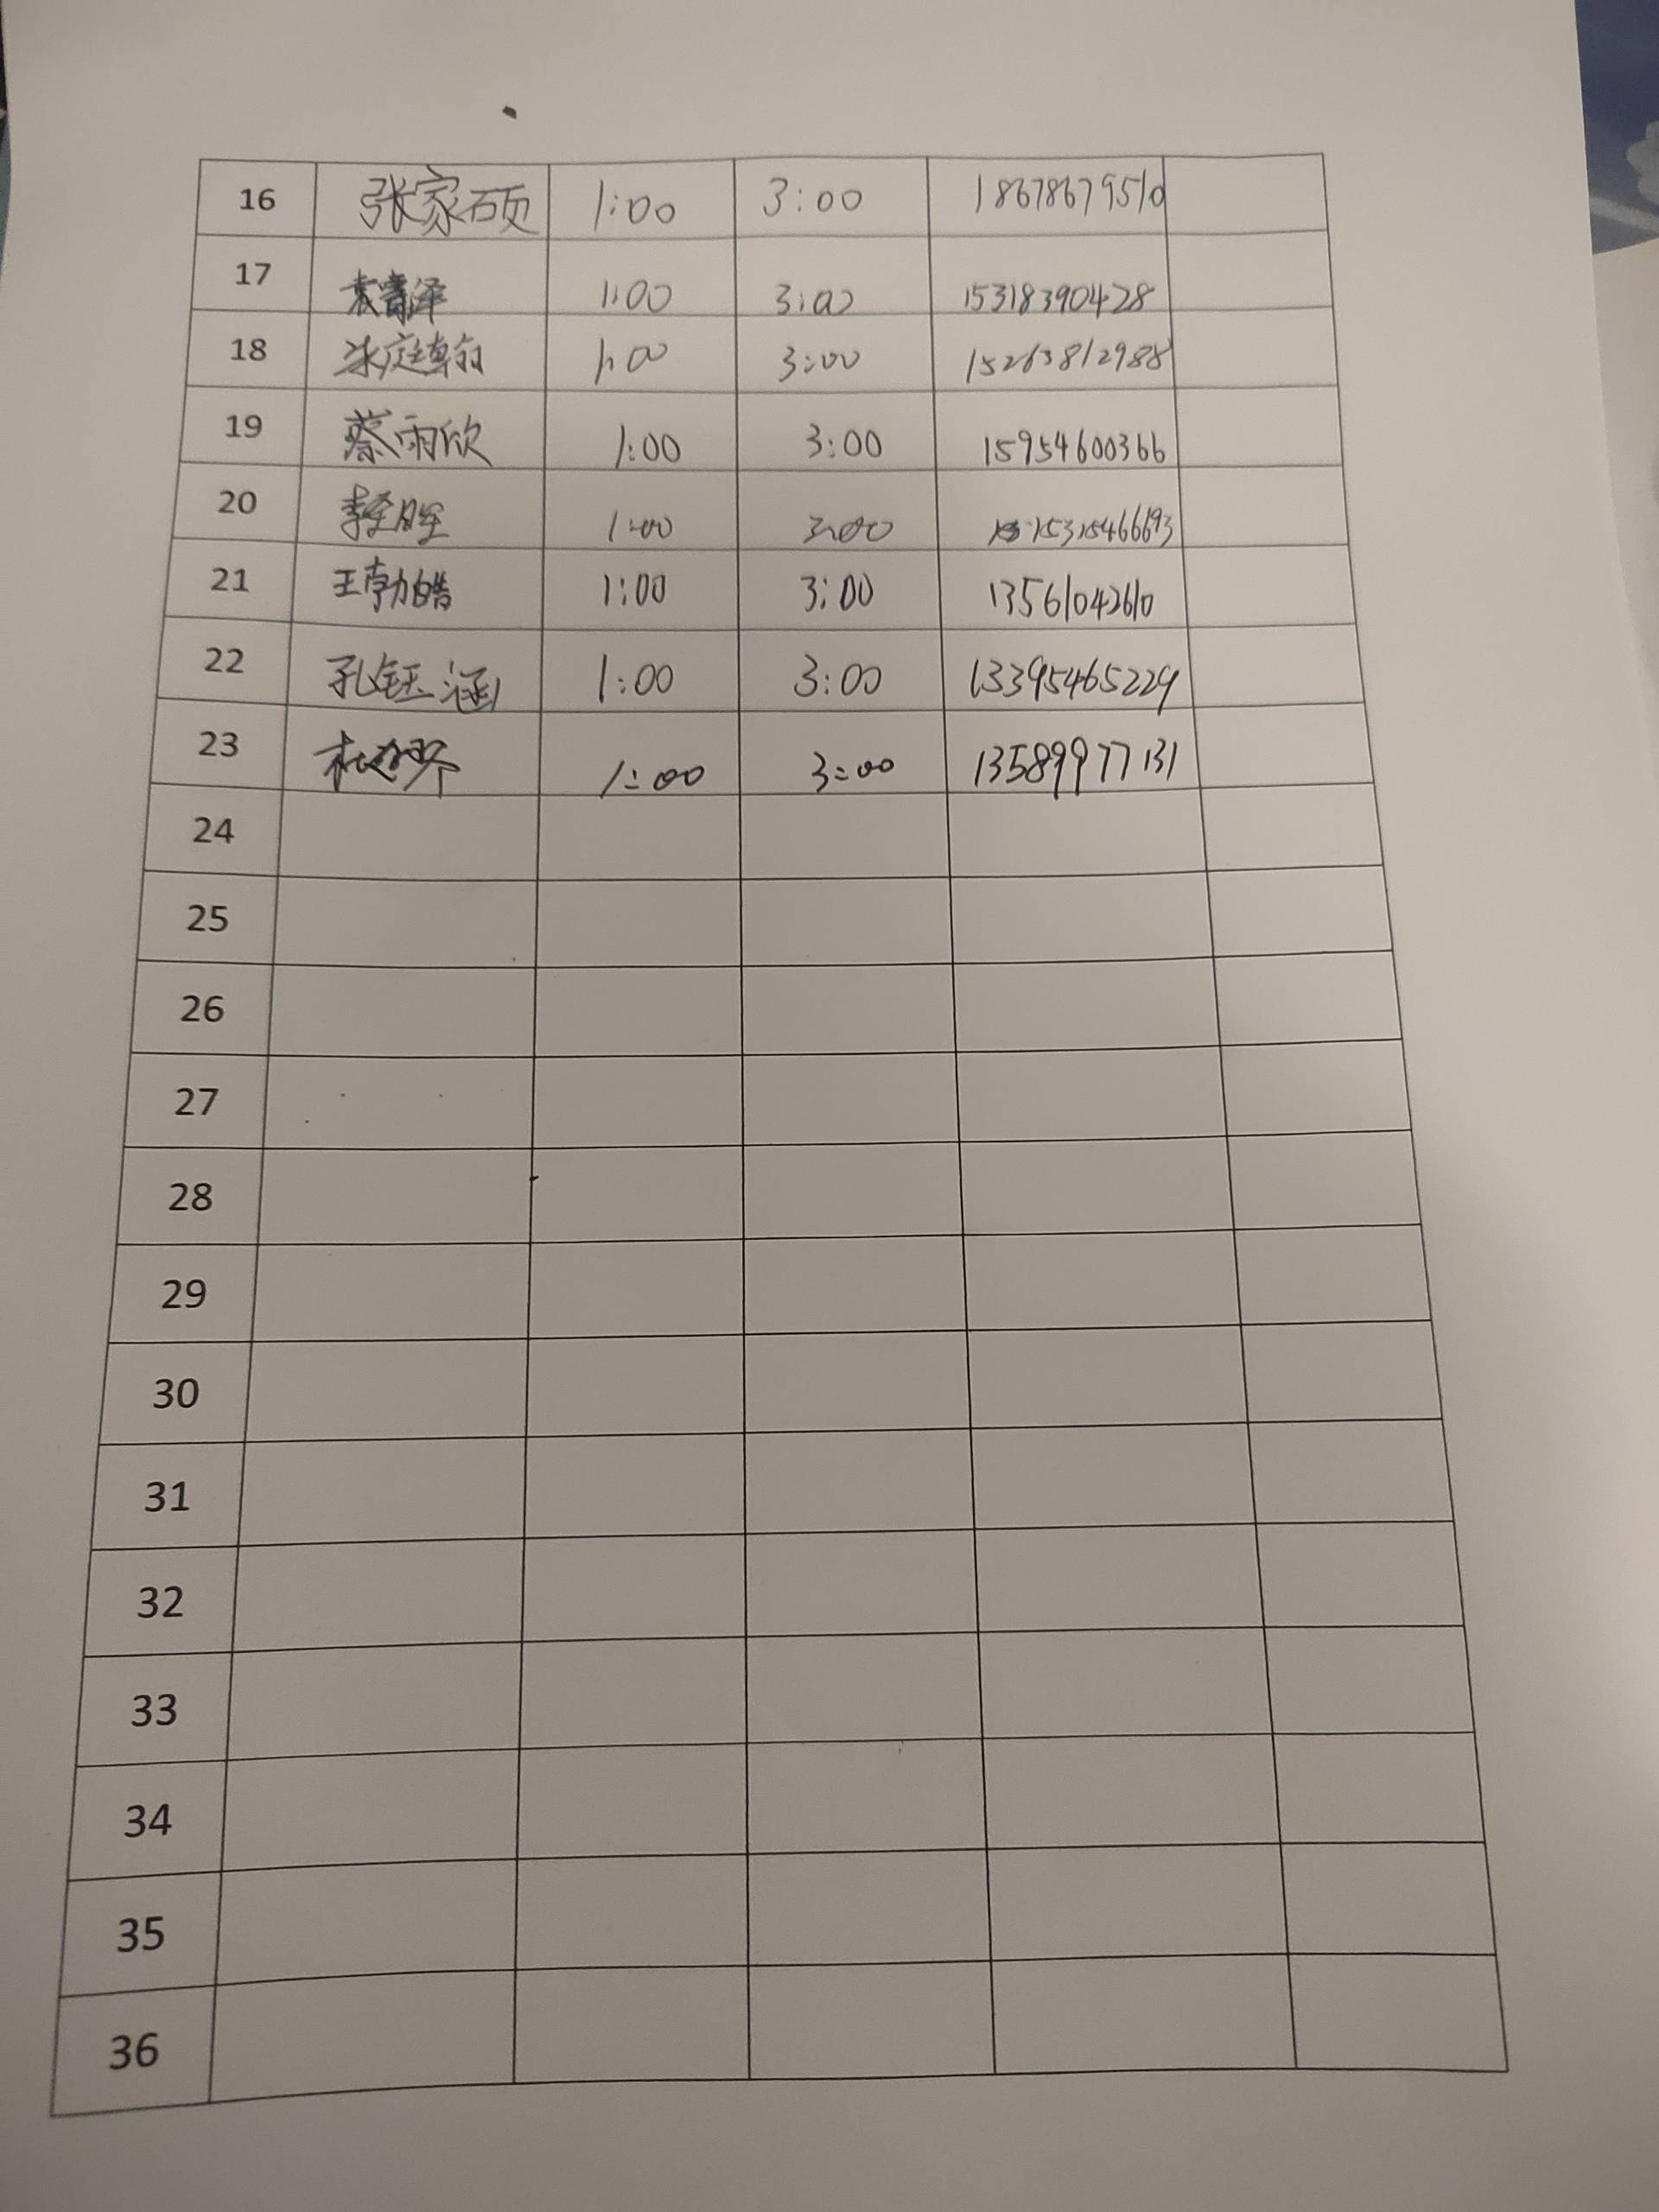 16 张家硕 1:00 3:00 18678679510
17 袁 泽 1:00 3:00 15318390428
18 庭 1:00 3:00 15263812988
19 蔡雨欣 1:00 3:00 15954600366
20 李 胜 1:00 3:00 15315466693
21 王勃皓 1:00 3:00 13561042610
22 孔钰涵 1:00 3:00 13395465229
23 1:00 3:00 13589977131
24
25
26
27
28
29
30
31
32
33
34
35
36